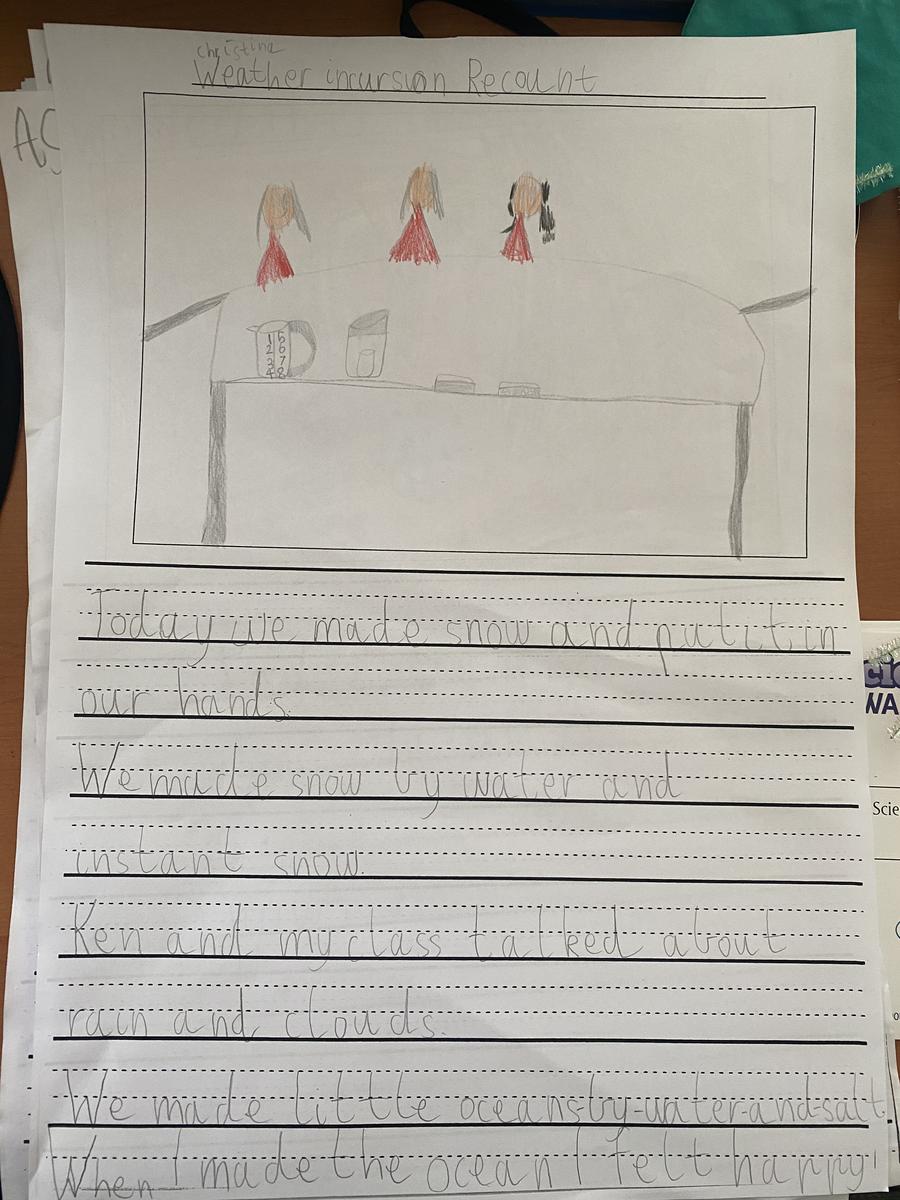 christina
Weather incursion Recount
AC
1 5
2 6
3 7
4 8
Today we made snow and put it in
our hands.
We made snow by water and
instant snow.
Ken and my class talked about
rain and clouds.
We made little oceans by water and salt.
When I made the ocean I felt happy!
WA
Scie